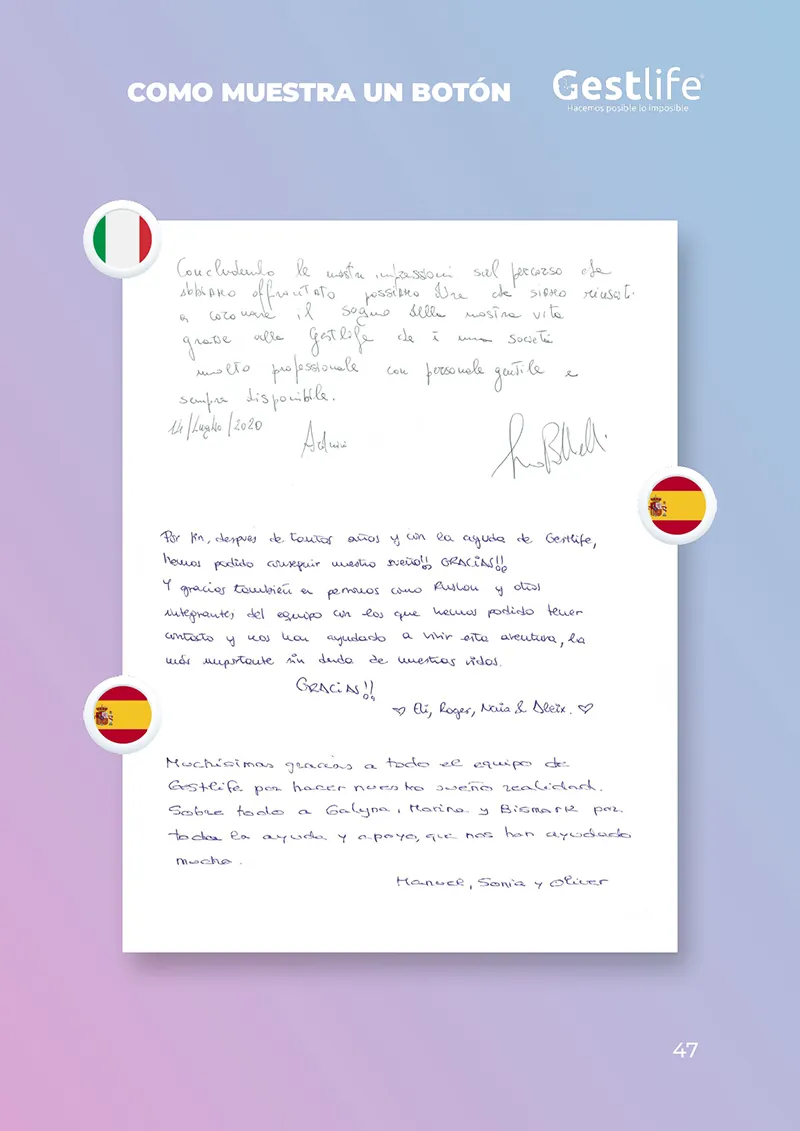 COMO MUESTRA UN BOTÓN
Gestlife
Hacemos posible lo imposible
Concludendo le nostre impressioni sul percorso che
abbiamo affrontato possiamo dire che siamo riusciti
a coronare il sogno della nostra vita
grazie alla Gestlife che è una società
molto professionale con personale gentile e
sempre disponibile.
14/Luglio/2020
Por fin, después de tantos años y con la ayuda de Gestlife,
hemos podido conseguir nuestro sueño!! GRACIAS!!
Y gracias también a personas como Ruslan y otros
integrantes del equipo con los que hemos podido tener
contacto y nos han ayudado a vivir esta aventura, la
más importante sin duda de nuestras vidas.
GRACIAS!!
♡ Eli, Roger, Naia & Aleix. ♡
Muchísimas gracias a todo el equipo de
Gestlife por hacer nuestro sueño realidad.
Sobre todo a Galyna, Marina y Bismark por
toda la ayuda y apoyo, que nos han ayudado
mucho.
Manuel, Sonia y Oliver
47